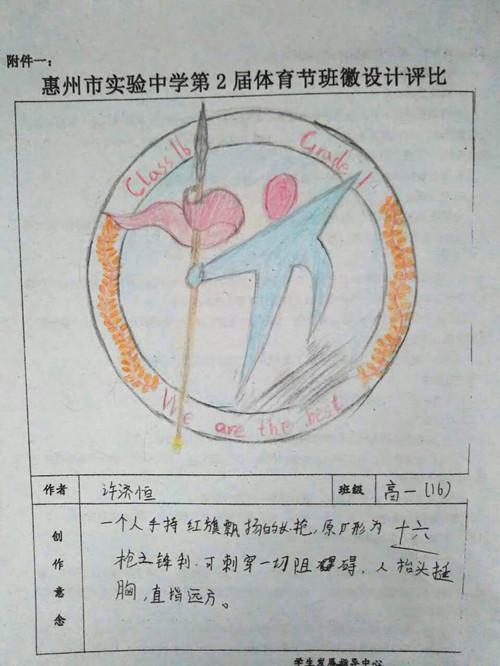 附件一：
惠州市实验中学第 2 届体育节班徽设计评比
Class 16 Grade 1
We are the best
作者 许济恒 班级 高一 (16)
创作意念
一个人手持红旗飘扬的 枪，原 形为 十六
枪 锋利，可刺穿一切阻碍，人抬头挺
胸，直指远方。
学生发展指导中心